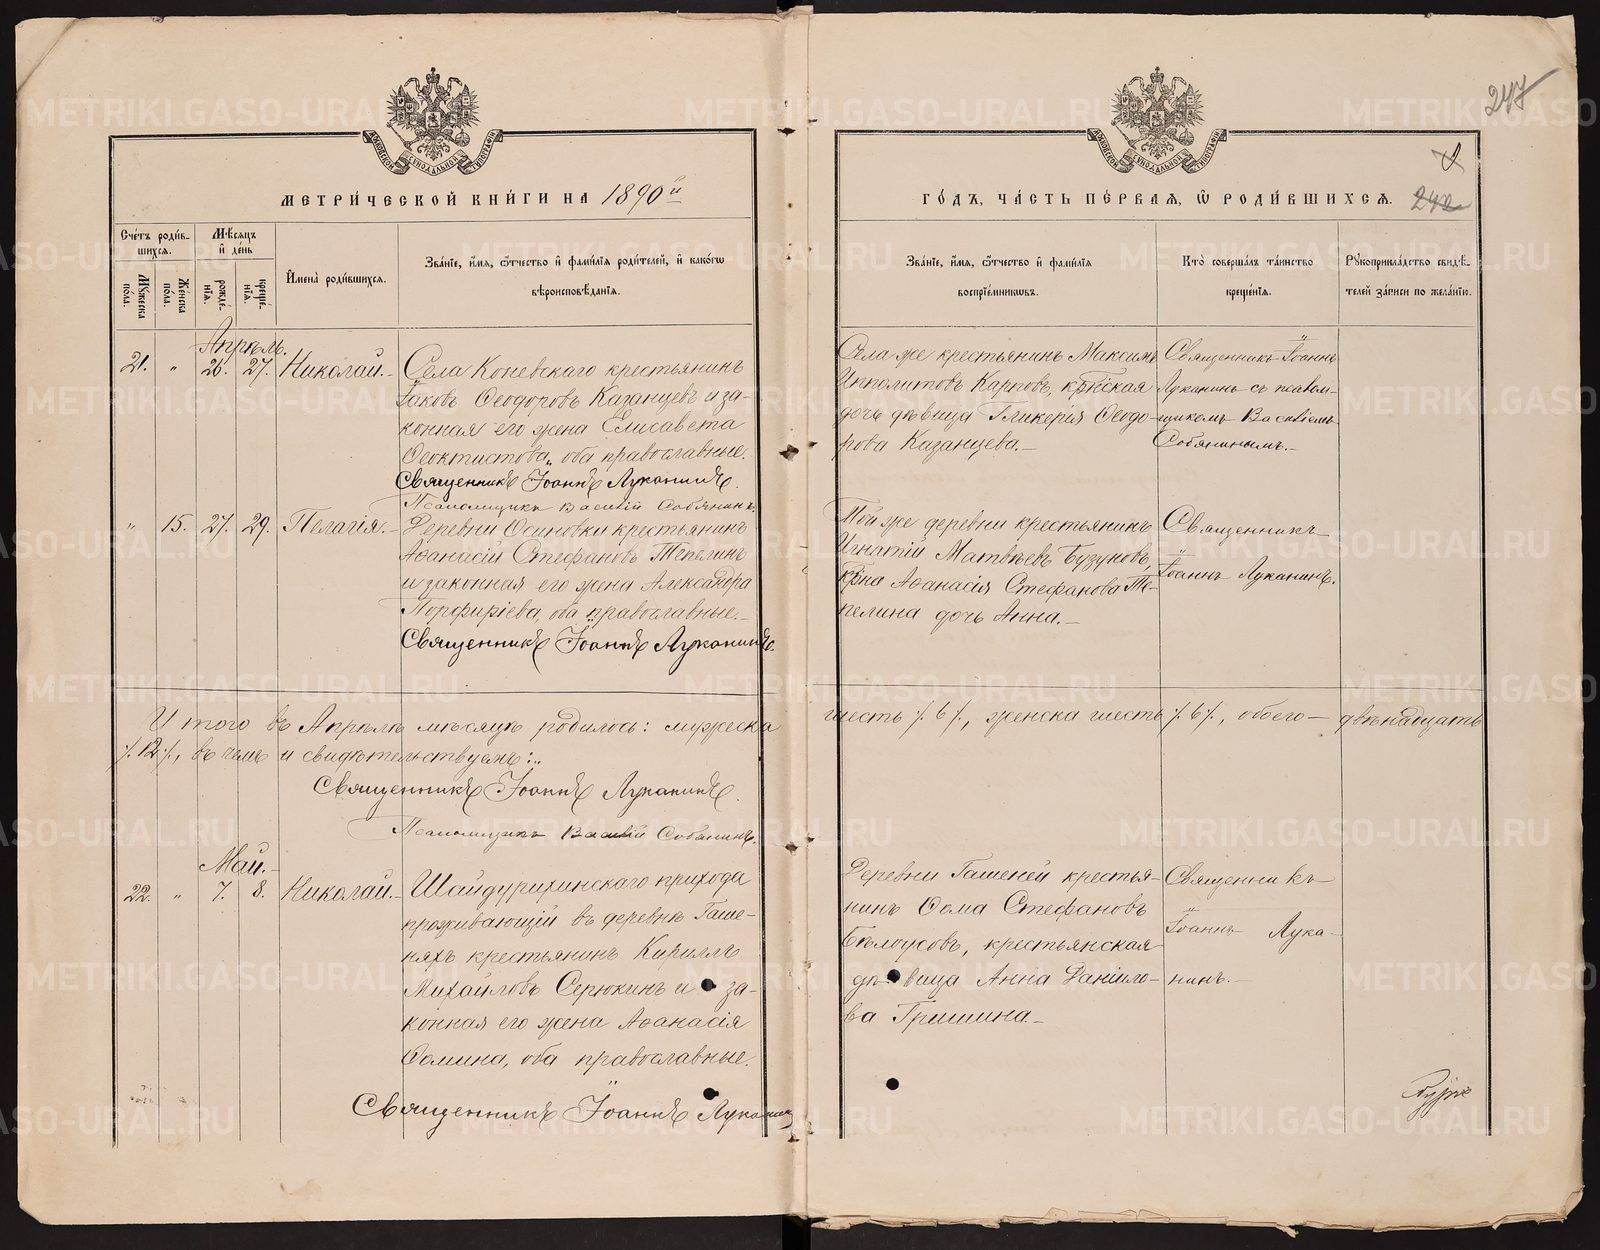 247
МЕТРИ́ЧЕСКОЙ КНИ́ГИ НА 1890й
ГО́ДЪ, ЧА́СТЬ ПЕ́РВАЯ, Ѽ РОДИ́ВШИХСЯ.
242
Сче́тъ роди́в-
шихся.
Мѣ́сяцъ
и҆ де́нь
Мꙋ́жеска
по́ла.
Же́нска
по́ла.
рожде́-
нїя.
креще́-
нїя.
И҆мена̀ роди́вшихся.
Зва́нїе, и҆́мя, ѻ҆́тчество и҆ фами́лїя роди́телей, и҆ како́гѡ
вѣроисповѣ́данїя.
Зва́нїе, и҆́мя, ѻ҆́тчество и҆ фами́лїя
воспрїе́мникѡвъ.
Кто̀ соверша́лъ та́инство
креще́нїя.
Рꙋкоприкла́дство свидѣ́-
телей за́писи по жела́нїю.
Апрѣль.
21. „ 26. 27. Николай.
Села Коневскаго крестьянинъ
Іаковъ Ѳеодоровъ Казанцевъ и за-
конная его жена Елисавета
Ѳеоктистова, оба православные.
Священникъ Іоаннъ Луканинъ.
Псаломщикъ Василій Собянинъ.
Села же крестьянинъ Максимъ
Ипполитовъ Карповъ, кр‑нская
дочь дѣвица Гликерія Ѳеодо-
рова Казанцева.
Священникъ Іоаннъ
Луканинъ съ псалом-
щикомъ Василіемъ
Собянинымъ.
„ 15. 27. 29. Пелагія.
Деревни Осиновки крестьянинъ
Аѳанасій Стефановъ Тепелинъ
и законная его жена Александра
Порфиріева, оба православные.
Священникъ Іоаннъ Луканинъ.
Той же деревни крестьянинъ
Игнатій Матвѣевъ Бузуновъ,
кр‑на Аѳанасія Стефанова Те-
пелина дочь Анна.
Священникъ
Іоаннъ Луканинъ.
И того въ Апрѣлѣ мѣсяцѣ родилось: мужеска шесть /.6/., женска шесть /.6/., обоего двѣнадцать
/.12/., въ чемъ и свидѣтельствуемъ:
Священникъ Іоаннъ Луканинъ.
Псаломщикъ Василій Собянинъ.
Май.
22. „ 7. 8. Николай.
Шайдурихинскаго прихода
проживающій въ деревнѣ Гаше-
няхъ крестьянинъ Кириллъ
Михайловъ Серюкинъ и за-
конная его жена Аѳанасія
Ѳомина, оба православные.
Священникъ Іоаннъ Луканинъ
Деревни Гашеней крестья-
нинъ Ѳома Стефановъ
Бѣлоусовъ, крестьянская
дѣвица Анна Данило-
ва Гришина
Священникъ
Іоаннъ Лука-
нинъ.
METRIKI.GASO-URAL.RU